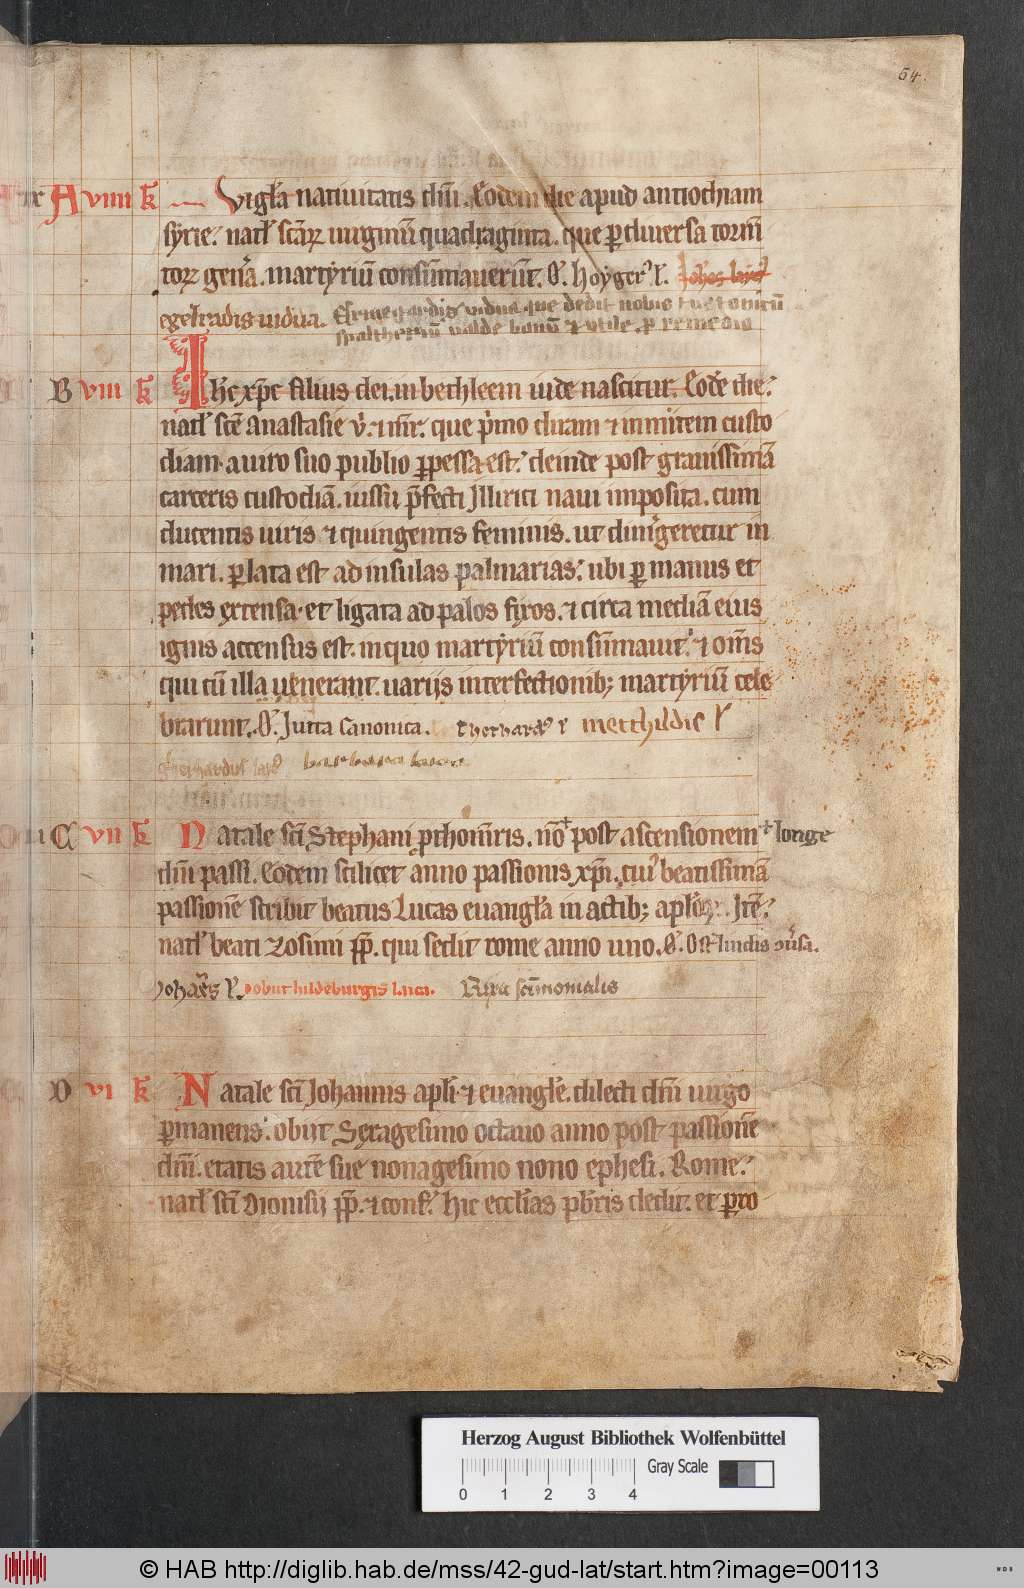 54.
A viiii k̄ Vigl'a natiuitatis dn̄i. Eodem die apud antiochiam
syrie. natł scārꝝ uirginū quadraginta. que ꝑ diuersa torm̄
torꝝ gen̄a. martyriū consūmauerūt. O. hoyger' ł. Joh̄es layc'
egelradis uidua. Ermegardis uidua que dedit nobis
psalteriū valde bonū et utile ꝓ remedio
B viii k̄ Ihc xp̄c filius dei. in bethleem iude nascitur. Eodē die.
natł scē Anastasie v̄. ⁊ m̄r. que p'mo diram ⁊ inmitem custo
diam. a uiro suo publio ꝑpessa est. deinde post grauissimā
carceris custodiā. iussu p̄fecti Illirici naui imposita. cum
ducentis uiris ⁊ quingentis feminis. ut dimergeretur in
mari. ꝑlata est ad insulas palmarias. ubi ꝑ manus et
pedes extensa. et ligata ad palos fixos. ⁊ circa mediā eius
ignis accensus est. in quo martyriū consūmauit. ⁊ om̄s
qui cū illa uenerant. uariis interfectionib; martyriū cele
brarunt. O. Jutta Canonica. Therhard' ł metthildis ł
gherhardus layc' barbara
C vii k̄ Natale scī Stephani ꝓthom̄ris. nō post ascensionem longe
dn̄i passi. Eodem scilicet anno passionis xp̄i. cui' beatissimā
passionē scribit beatus Lucas euangl'a in actib; apl'oꝝ. Itē.
natł beati Zosimi pp̄. qui sedit rome anno uno. O. Ostlindis ↄu'sa.
Johannes ł. obiit hildeburgis laica. Rixa scīmonialis
D vi k̄ Natale scī Johannis apl'i. ⁊ euangl'e. dilecti dn̄i uirgo
ꝑmanens. obiit Sexagesimo octauo anno post passionē
dn̄i. etatis autē sue nonagesimo nono ephesi. Rome.
natł scī Dionisij pp̄. ⁊ conf. hic eccl'ias pb'ris dedit. et ꝑro
Herzog August Bibliothek Wolfenbüttel
Gray Scale
0 1 2 3 4
© HAB http://diglib.hab.de/mss/42-gud-lat/start.htm?image=00113